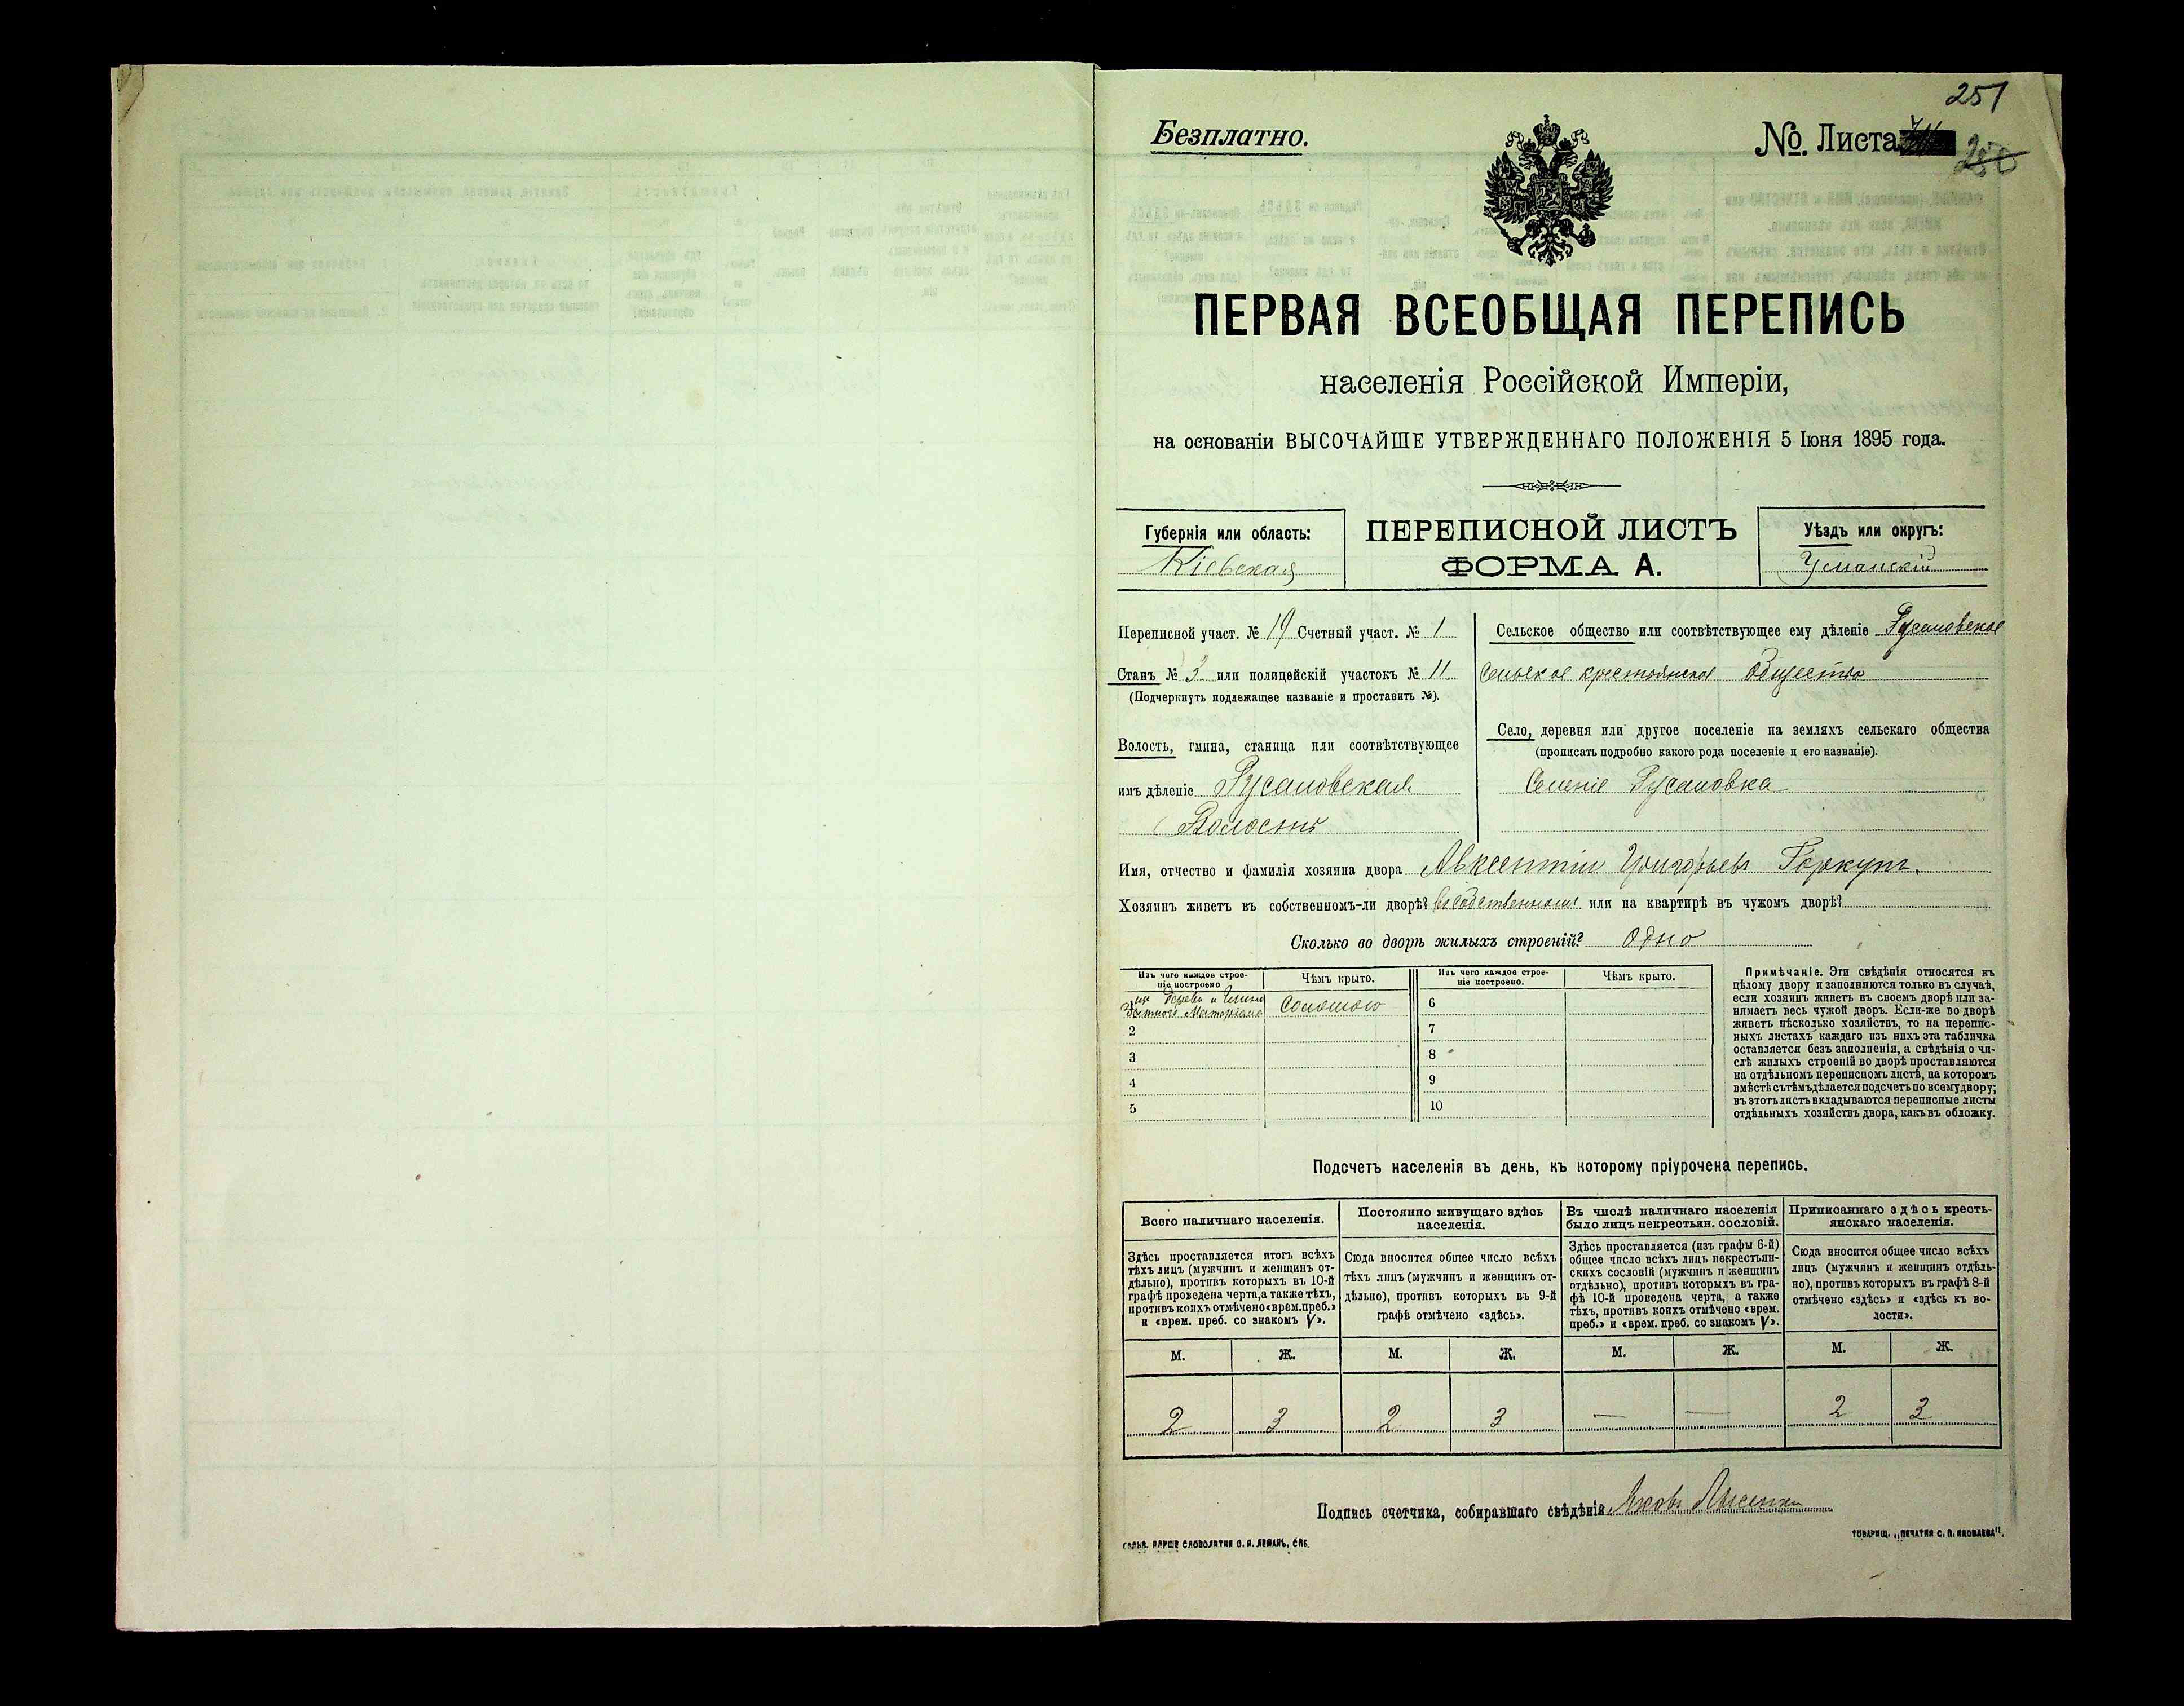 251
Безплатно.
№. Листа
250
ПЕРВАЯ ВСЕОБЩАЯ ПЕРЕПИСЬ
населенія Россійской Имперіи,
на основаніи ВЫСОЧАЙШЕ УТВЕРЖДЕННАГО ПОЛОЖЕНІЯ 5 Іюня 1895 года.
Губернія или область:
Кіевская
ПЕРЕПИСНОЙ ЛИСТЪ
ФОРМА А.
Уѣздъ или округъ:
Уманскій
Переписной участ. № 19 Счетный участ. № 1
Станъ № 3 или полицейскій участокъ № 11
(Подчеркнуть подлежащее названіе и проставить №).
Волость, гмина, станица или соотвѣтствующее
имъ дѣленіе Русаловская
Волость
Сельское общество или соотвѣтствующее ему дѣленіе Русаловское
Сельское крестьянское общество
Село, деревня или другое поселеніе на земляхъ сельскаго общества
(прописать подробно какого рода поселеніе и его названіе).
Селеніе Русаловка
Имя, отчество и фамилія хозяина двора Авксентій Григорьевъ
Хозяинъ живетъ въ собственномъ-ли дворѣ? въ собственномъ или на квартирѣ въ чужомъ дворѣ?
Сколько во дворѣ жилыхъ строеній? Одно
Изъ чего каждое строе-
ніе построено
Чѣмъ крыто.
Изъ чего каждое строе-
ніе построено.
Чѣмъ крыто.
Соломою
2
3
4
5
6
7
8
9
10
Примѣчаніе. Эти свѣдѣнія относятся къ
цѣлому двору и заполняются только въ случаѣ,
если хозяинъ живетъ въ своемъ дворѣ или за-
нимаетъ весь чужой дворъ. Если-же во дворѣ
живетъ нѣсколько хозяйствъ, то на перепис-
ныхъ листахъ каждаго изъ нихъ эта табличка
оставляется безъ заполненія, а свѣдѣнія о чи-
слѣ жилыхъ строеній во дворѣ проставляются
на отдѣльномъ переписномъ листѣ, на которомъ
вмѣстѣ съ тѣмъ дѣлается подсчетъ по всему двору;
въ этотъ листъ вкладываются переписные листы
отдѣльныхъ хозяйствъ двора, какъ въ обложку.
Подсчетъ населенія въ день, къ которому пріурочена перепись.
Всего наличнаго населенія.
Здѣсь проставляется итогъ всѣхъ
тѣхъ лицъ (мужчинъ и женщинъ от-
дѣльно), противъ которыхъ въ 10-й
графѣ проведена черта, а также тѣхъ,
противъ коихъ отмѣчено «врем. преб.»
и «врем. преб. со знакомъ V».
Постоянно живущаго здѣсь
населенія.
Сюда вносится общее число всѣхъ
тѣхъ лицъ (мужчинъ и женщинъ от-
дѣльно), противъ которыхъ въ 9-й
графѣ отмѣчено «здѣсь».
Въ числѣ наличнаго населенія
было лицъ некрестьян. сословій.
Здѣсь проставляется (изъ графы 6-й)
общее число всѣхъ лицъ некрестьян-
скихъ сословій (мужчинъ и женщинъ
отдѣльно), противъ которыхъ въ гра-
фѣ 10-й проведена черта, а также
тѣхъ, противъ коихъ отмѣчено «врем.
преб.» и «врем. преб. со знакомъ V».
Приписаннаго здѣсь кресть-
янскаго населенія.
Сюда вносится общее число всѣхъ
лицъ (мужчинъ и женщинъ отдѣль-
но), противъ которыхъ въ графѣ 8-й
отмѣчено «здѣсь» и «здѣсь къ во-
лости».
М. Ж. М. Ж. М. Ж. М. Ж.
2 3 2 3 — — 2 3
Подпись счетчика, собиравшаго свѣдѣнія Яковъ Лысенко
ТОВАРИЩ. „ПЕЧАТНЯ С. П. ЯКОВЛЕВА".
СЛОВОЛИТНЯ О. И. ЛЕМАНЪ, СПБ.